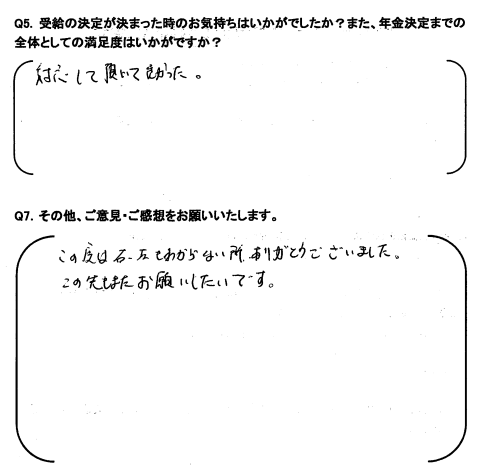 Q5. 受給の決定が決まった時のお気持ちはいかがでしたか？また、年金決定までの
全体としての満足度はいかがですか？
対応して頂いて良かった。
Q7. その他、ご意見・ご感想をお願いいたします。
この度は右、左もわからない所、ありがとうございました。
この先もまたお願いしたいです。